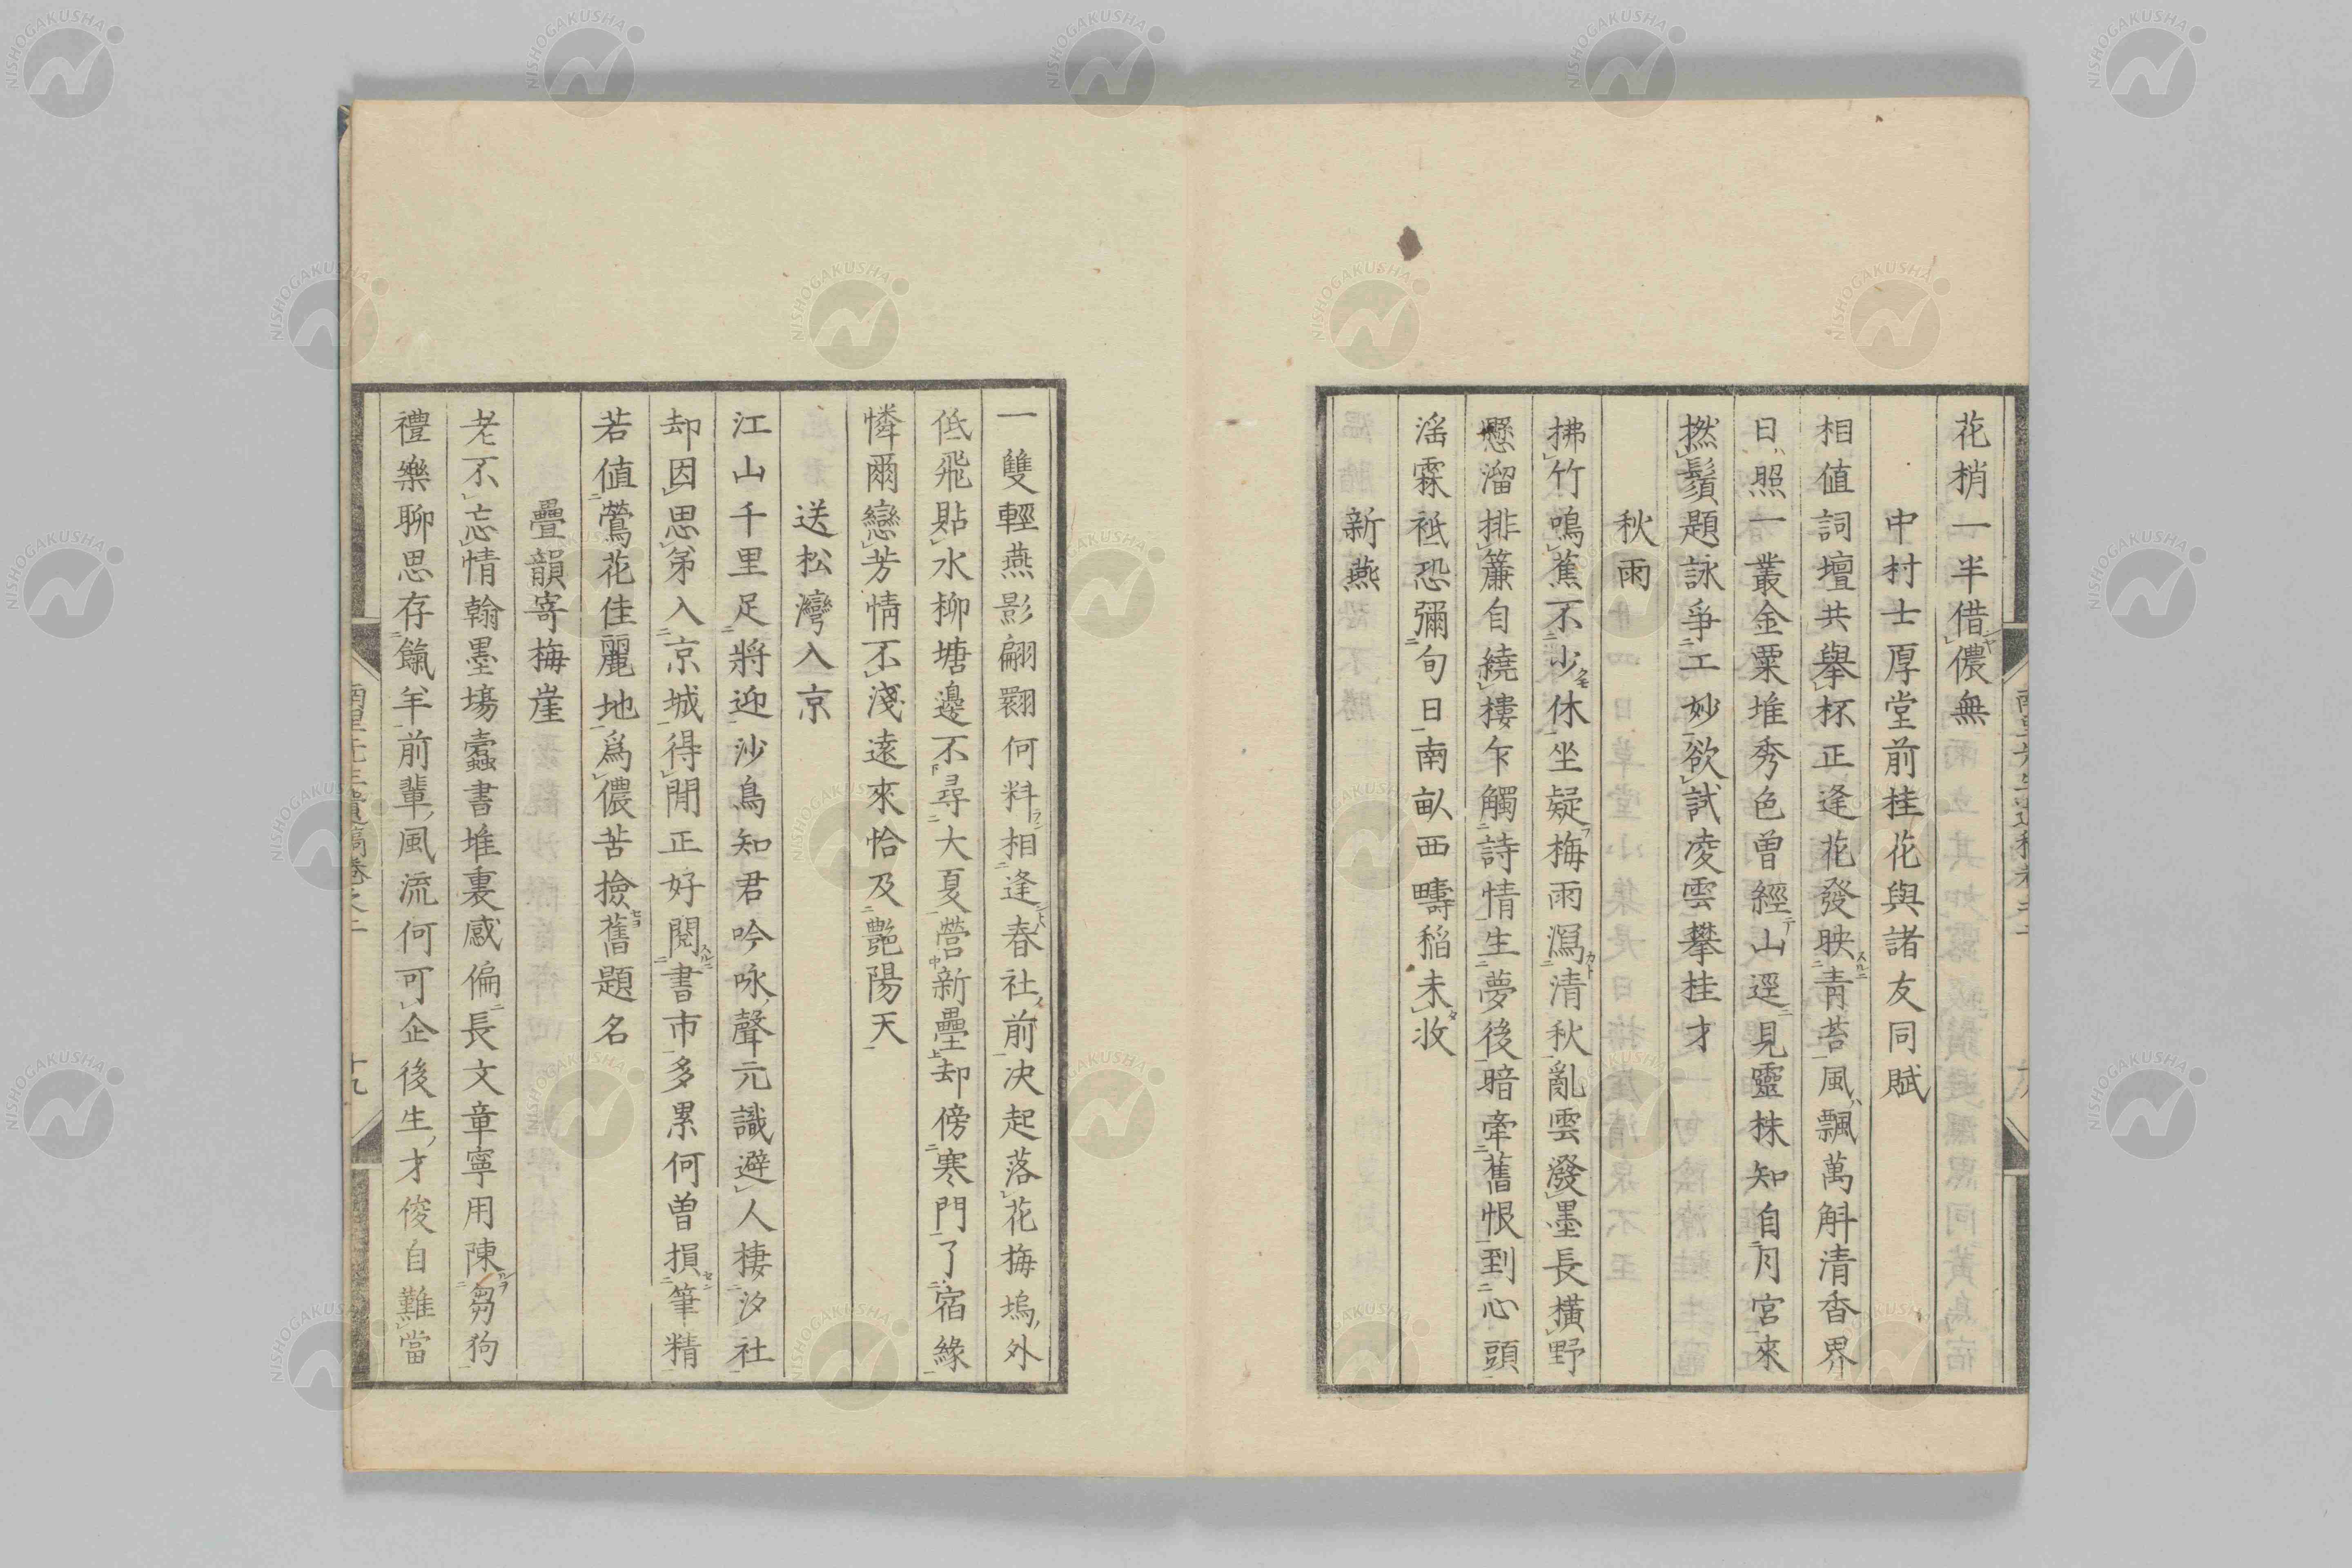 花梢一半借儂無
中村士厚堂前桂花與諸友同賦
相値詞壇共舉杯正逢花發映靑苔風飄萬斛清香界
日照一叢金粟堆秀色曾經山逕見靈株知自月宮來
撚鬚題詠爭工妙欲試凌雲攀桂才
秋雨
拂竹鳴蕉不少休坐疑梅雨瀉清秋亂雲潑墨長橫野
懸溜排簷自繞樓乍觸詩情生夢後暗牽舊恨到心頭
滛霖衹恐彌旬日南畝西疇稻未收
新燕
一雙輕燕影翩翾何料相逢春社前決起落花梅塢外
低飛貼水柳塘邊不尋大夏營新壘却傍寒門了宿緣
憐爾戀芳情不淺遠來恰及艷陽天
送松灣入京
江山千里足將迎沙鳥知君吟咏聲元識避人棲汐社
却因思弟入京城得閒正好閱書市多累何曾損筆精
若値鶯花佳麗地爲儂苦撿舊題名
疊韻寄梅崖
老不忘情翰墨塲蠹書堆裏感偏長文章寧用陳芻狗
禮樂聊思存餼羊前輩風流何可企後生才俊自難當
十九
NISHOGAKUSHA